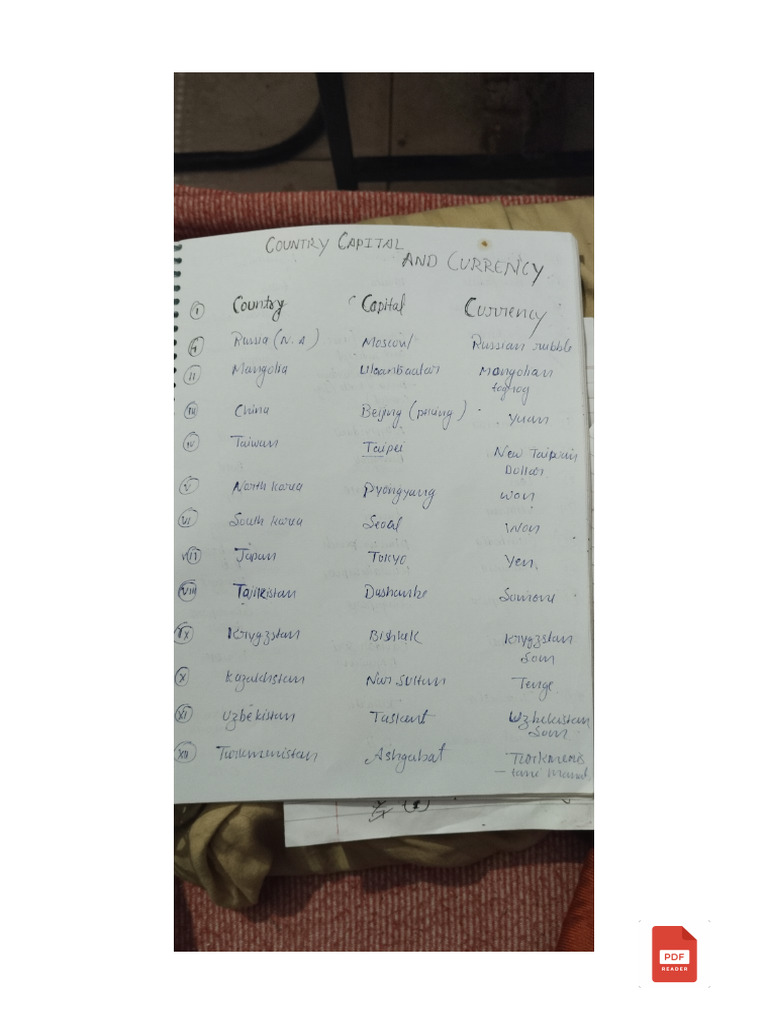 COUNTRY CAPITAL
AND CURRENCY
I Country Capital Currency
Russia (N.A) Moscow Russian rubble
II Mangolia Ulaanbaatar Mongolian
togrog
III China Beijing (peking) Yuan
IV Taiwan Taipei New Taiwain
Dollar
V North korea Pyongyang won
VI South korea Seoal Won
VII Japan Tokyo Yen
VIII Tajikistan Dushanbe Somoni
IX Krygzstan Bishkek Krygzstan
Som
X Kazakhstan Nur Sultan Tenge
XI Uzbekistan Taskent Uzbekistan
Som
XII Turkmenistan Ashgabat Turkmenis
-tani Manat
PDF
READER